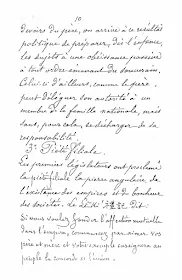 10
devoirs du père, on arrive à ce résultat
politique de préparer, dès l'enfance,
les sujets à une obéissance passive
à tout ordre émanant du souverain.
Celui-ci d'ailleurs, comme le père,
peut déléguer son autorité à un
membre de la famille nationale, mais
sans, pour cela, se décharger de sa
responsabilité.
3° Piété filiale.
Les premiers législateurs ont proclamé
la piété filiale la pierre angulaire de
l'existence des empires et du bonheur
des sociétés. Le dit:
Si vous voulez fonder l'affection mutuelle
dans l'empire, commencez par aimer vos
père et mère et votre exemple enseignera au
peuple la concorde et l'union.